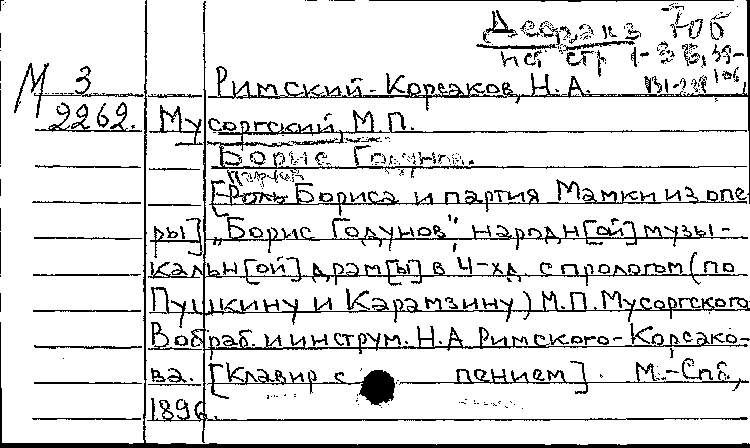 Дефект 706
нет стр 1-36, 39-
М 3 Римский-Корсаков, Н. А. 131-238, 106,
2262. Мусоргский, М.П.
Борис Годунов.
партия
[Роль Бориса и партия Мамки из опе
ры] „Борис Годунов" народн[ой] музы-
кальн[ой] драм[ы] в 4-хд. с прологом (по
Пушкину и Карамзину) М.П. Мусоргского
В обраб. и инструм. Н.А Римского-Корсако-
ва. [Клавир с пением]. М.-Спб,
1896.